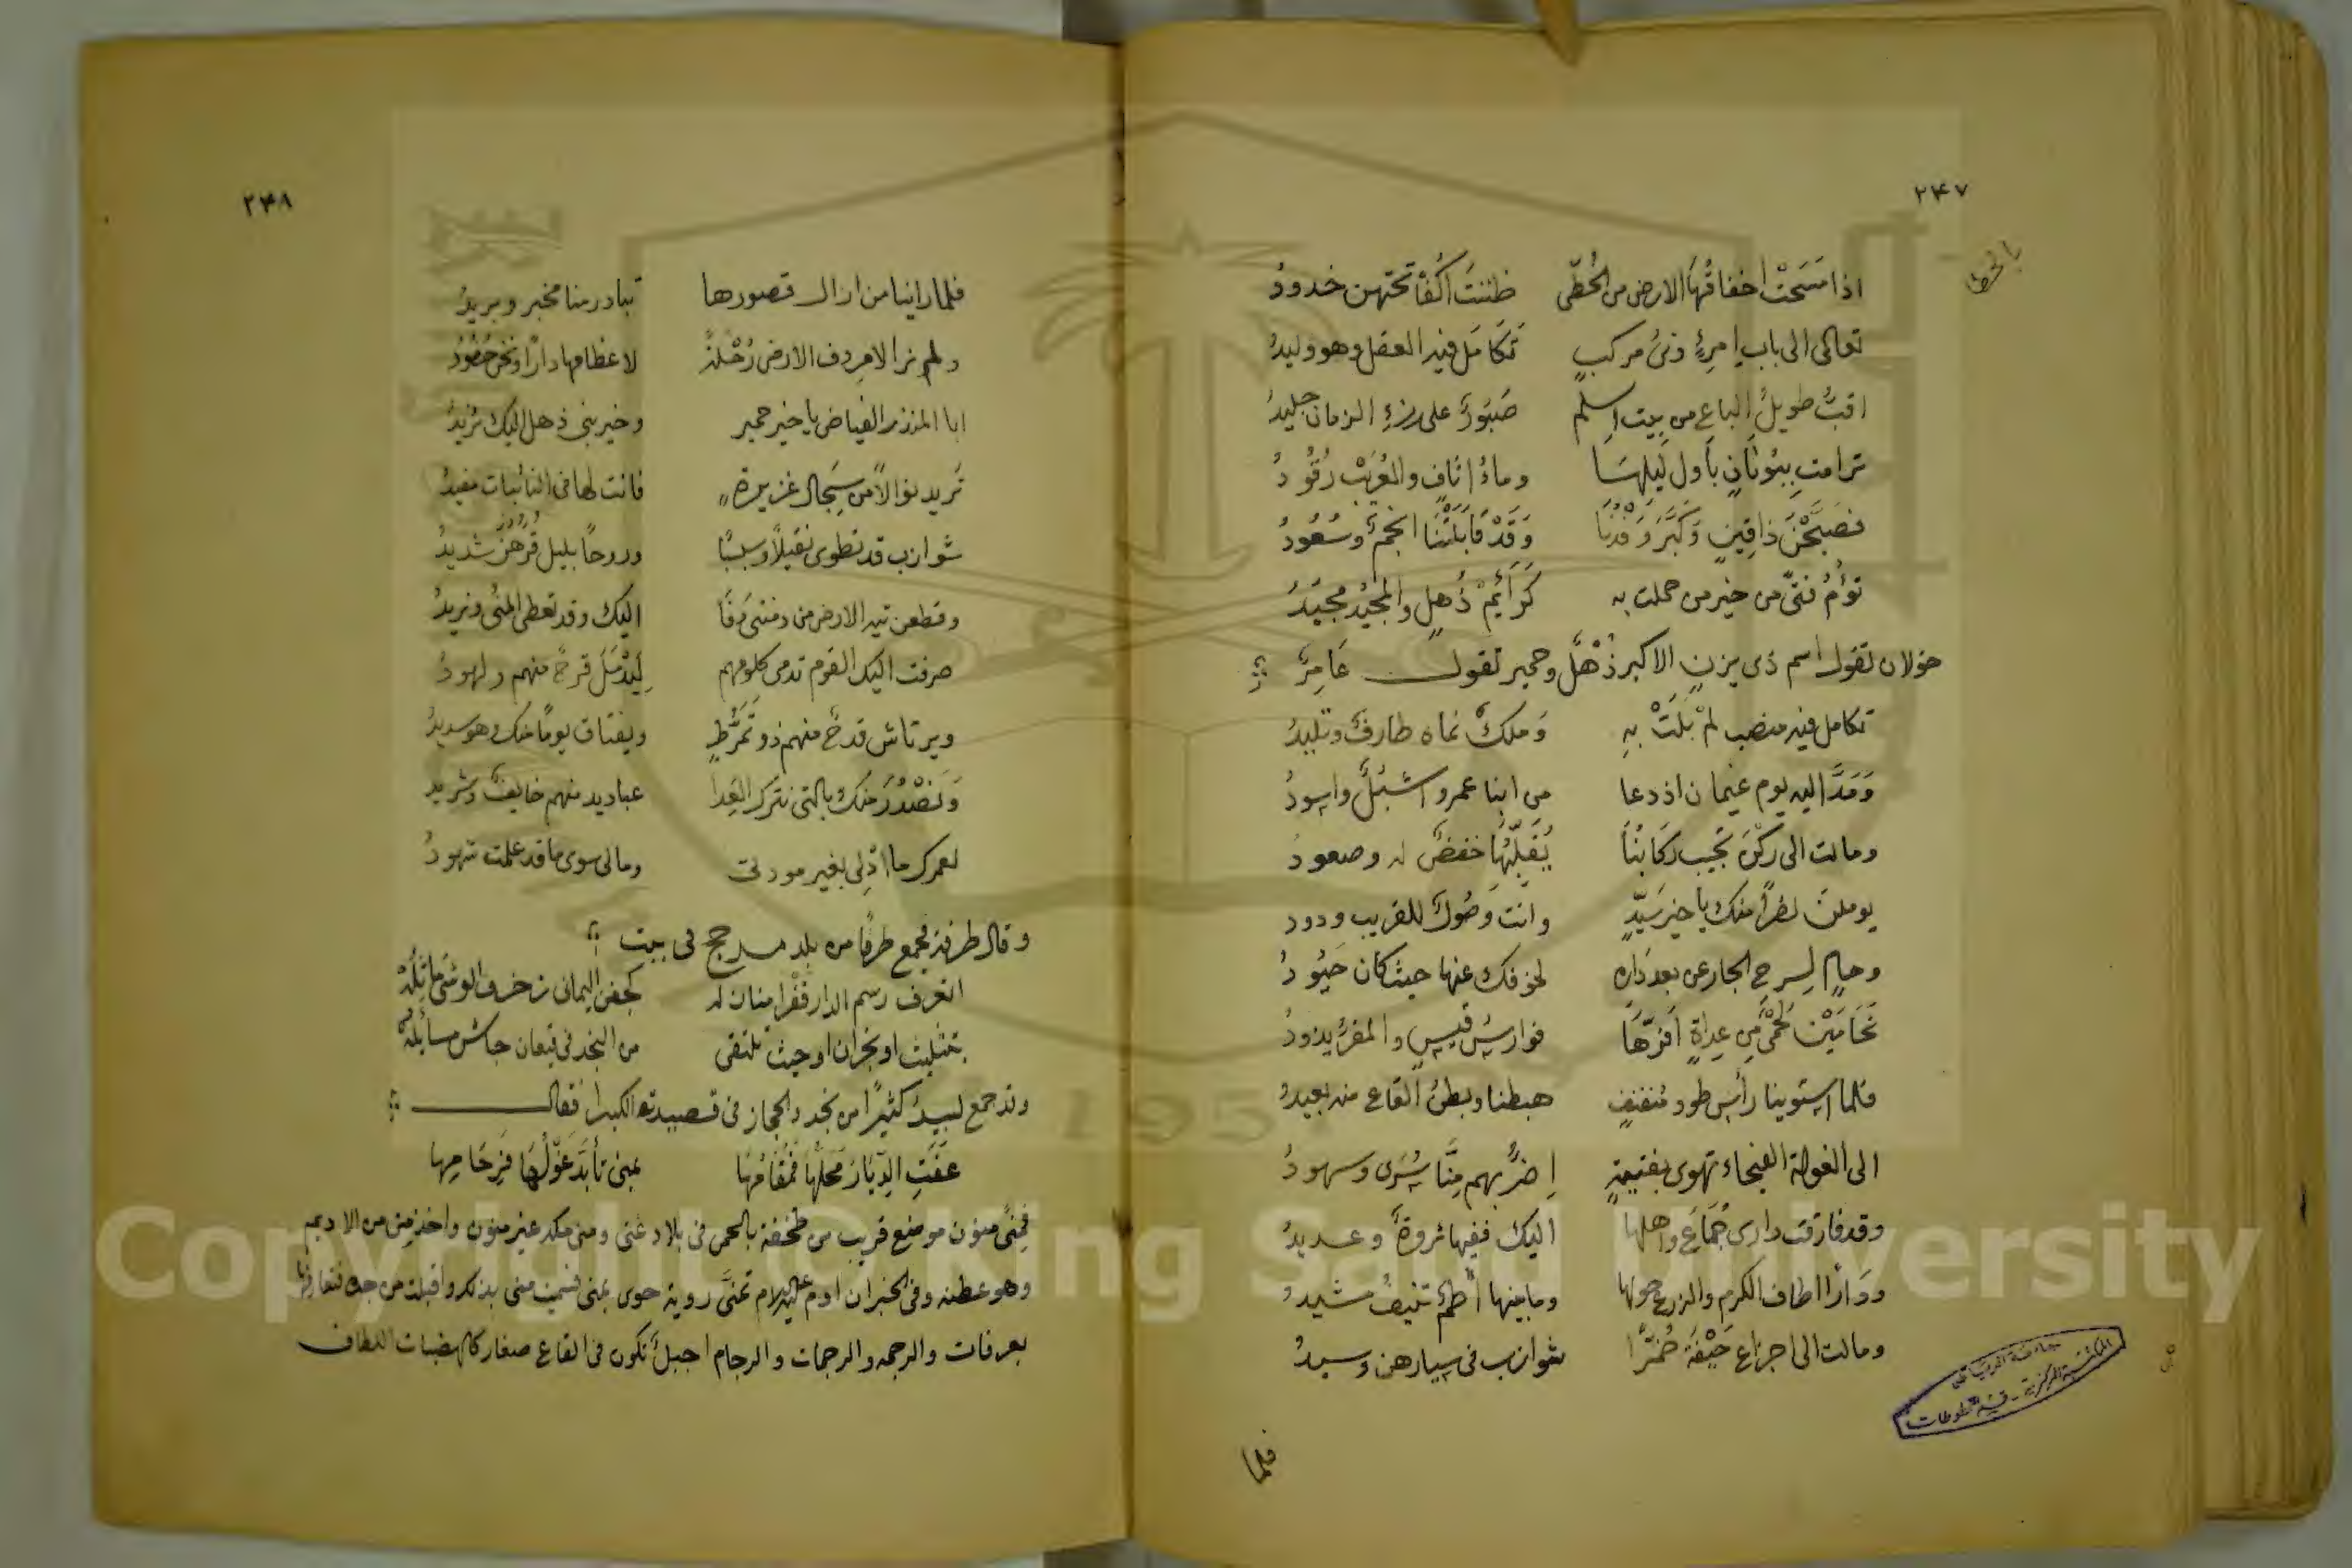 ٢٤٧
بالخطا
اذا مَسَحَتْ اخفاقُهَا الارض من الخُطّى ظننتَ اكُفّا تحتهن خدودُ
تعالى الى باب امرِئٍ وَنى مركبٍ تَكَامَل فيه العقل وهو وليدُ
اقبّ طويلُ الباع من بيت اسلم صَبَورٌ على رزءِ الزمان جليدُ
ترامت بِبُونَانٍ بأول لَيلهَا وماذُ اثافٍ والعُرَيْب رُقُودُ
فصبَّحْنَ ذاقِينٍ وَكَبَّرَ وَفْدُنَا وَقَدْ قَابَلَتْنَا انجمٌ وسُعُودُ
تؤمُ فتىً من خير من حملت به كَرَائِمُ ذُهلٍ والمجِيْدُ مجيَدُ
خولان تقول اسم ذى يزن الاكبر ذُهْل وحمير تقول عَامِرٌ
تكامل فيه منصب لمْ بَلَتْ بهِ وَملكٌ نماه طارفٌ وتليدُ
وَمَدَّ اليه يوم غيمان اذ دعا من ابنا عمرو اشبُلٌ واسودُ
ومالت الى ركن نجيب ركابُنَا يُقَبِّلُهَا خفضٌ له وصعودُ
يوملن نضراً منك يا خير سَيّدٍ وانت وَصُولٌ للقريب ودود
وحامٍ لِسرحِ الجار عن بعد دَارِه لخوفك عنها حيث كان حَيُودُ
تَحَامَيْن لحمىً مِن عِداةٍ افزّهَا فوارسُ قيسٍ والمقرُّ يذودُ
فلما استوينا رأسَ طود مُنفنفٍ هبطنا وبطنُ القاع منه بعيدُ
الى الغولة الفيحاء تهوى بفتيةٍ اضرّ بهم مِنَّا سُرَى وسهودُ
وقد فارقت دارى جُمَاعَ واهلها اليك ففيها ثروةٌ وعديدُ
وَدَارًا اطاف الكرم والزرع حولها وما بينها اُطمٌ تنيفُ مشيدُ
ومالت الى اجزاع خَيْفَةَ ضُمَّرًا شوازب فى سيارهن وسيدُ
فلما
جامعة الرياض
المكتبة المركزية - قسم المخطوطات
٢٤٨
فلما راينا من ازال قصورها تبادر منا مخبر وبريدُ
ولم نر الا مِروف الارض رُحْلةً لاعظامها دارًا ونحن حُفُودُ
ابا المنذر الفياض يا خير حمير وخير بنى ذهل اليك نُريدُ
تَريد نوالًا من سِجال غزيرة فانت لها فى النائبات مفيدُ
شوازب قد تطوى نقيلاً وسبسبًا وروحاً بليل قُرُهُنّ شديدُ
وقطعن تيه الارض من دمنتى دَفَا اليك وقد تعطى المنُى ونزيدُ
صرفت اليك القوم تدمى كلومهم لِيَدْمَلَ قرحٌ منهم ولهودُ
ويرتاش قدحٌ منهم ذو تَمَرُّطٍ ويفتاق يومًا منك وهو سديدُ
وَنَصْدُرَ منك بالتى نترك العِدا عباديد منهم خايفٌ وشريد
لعمرك ما ادّلى بغير مودتى ومالى سوى ما قد علمت شهودُ
وقال طرفة فجمع طرفًا من بلد مذحج فى بيت
اتعرف رسم الدار قفْرا منازله كجفن اليمانى زخرف الوشى ماثِلُهْ
بتثليث او نجران او حيث تلتقى من النجد فى قيعان جاش مسائلهْ
وقد جمع لبيدٌ كثيرًا من نجد والحجاز فى قصيدته الكبرا فقال
عَفَتِ الدِّيَارُ مَحَلُّهَا فَمُقَامُهَا بمنى تأبَّدَ غَوْلُهَا فَرِجَامِها
فمنىً منون موضع قريب من طخفة بالحمى فى بلاد غنى ومنى مكه غير منون واخذ منى من الاديم
وهو عطنه وفى الخبر ان ادم عليه السلام تمنَّى روية حوى بمنى فسميت منى بذلك واقبلت من جده فتعارفا
بعرفات والرجمه والرجمات والرجام اجبلٌ تكون فى القاع صغار كالهضبات اللطاف
Copyright © King Saud University
1957